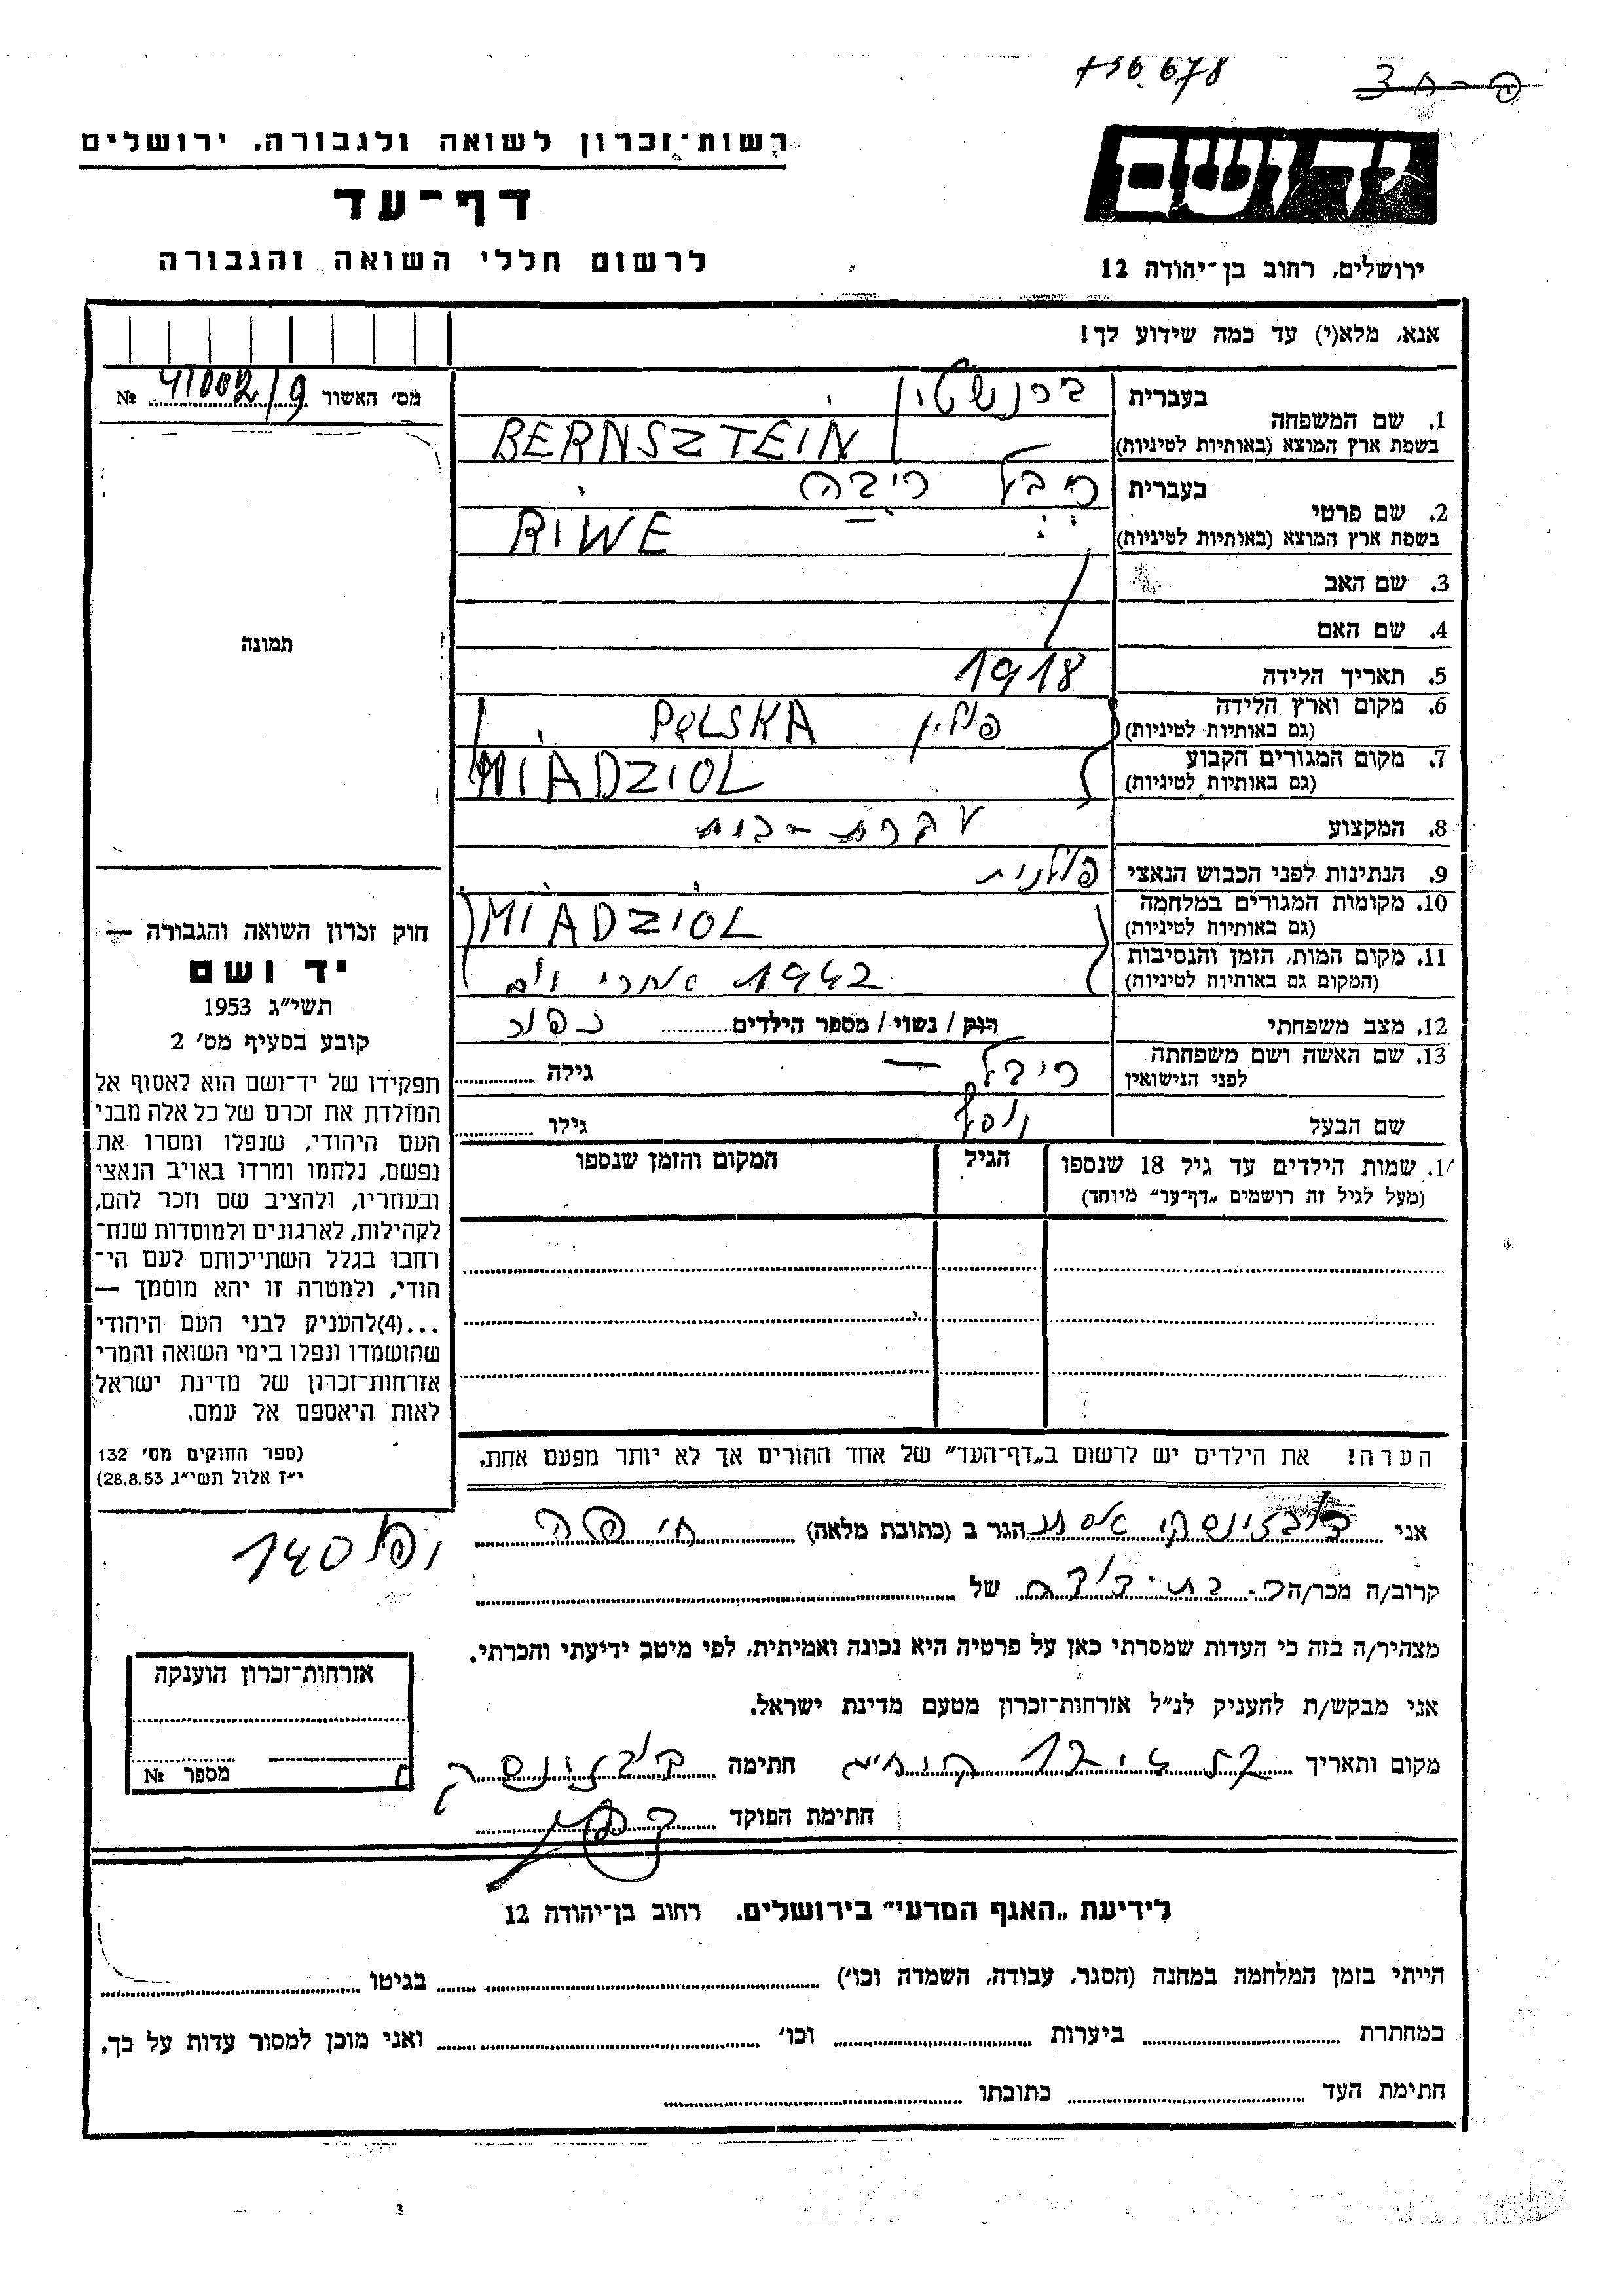 736.678
רשות־זכרון לשואה ולגבורה, ירושלים
דף־עד
לרשום חללי השואה והגבורה
יד ושם
ירושלים, רחוב בן־יהודה 12
אנא, מלא(י) עד כמה שידוע לך!
מס' האשור 41002/9 №
1. שם המשפחה
בעברית ברנשטין
בשפת ארץ המוצא (באותיות לטיניות) BERNSZTEIN
2. שם פרטי
בעברית ריבל ריבה
בשפת ארץ המוצא (באותיות לטיניות) RIWE
3. שם האב
4. שם האם
5. תאריך הלידה 1918
6. מקום וארץ הלידה פולין POLSKA
(גם באותיות לטיניות)
7. מקום המגורים הקבוע MIADZIOL
(גם באותיות לטיניות)
8. המקצוע עקרת-בית
9. הנתינות לפני הכבוש הנאצי פולנית
10. מקומות המגורים במלחמה MIADZIOL
(גם באותיות לטיניות)
11. מקום המות, הזמן והנסיבות 1942 אחרי
(המקום גם באותיות לטיניות)
12. מצב משפחתי רווק / נשוי / מספר הילדים
13. שם האשה ושם משפחתה ריבל – גילה
לפני הנישואין
שם הבעל יוסף גילו
14. שמות הילדים עד גיל 18 שנספו הגיל המקום והזמן שנספו
(מעל לגיל זה רושמים „דף־עד" מיוחד)
הערה! את הילדים יש לרשום ב„דף־העד" של אחד ההורים אך לא יותר מפעם אחת.
תמונה
חוק זכרון השואה והגבורה —
יד ושם
תשי"ג 1953
קובע בסעיף מס' 2
תפקידו של יד־ושם הוא לאסוף אל
המולדת את זכרם של כל אלה מבני
העם היהודי, שנפלו ומסרו את
נפשם, נלחמו ומרדו באויב הנאצי
ובעוזריו, ולהציב שם וזכר להם,
לקהילות, לארגונים ולמוסדות שנח־
רחבו בגלל השתייכותם לעם הי־
הודי, ולמטרה זו יהא מוסמך —
...(4)להעניק לבני העם היהודי
שהושמדו ונפלו בימי השואה והמרי
אזרחות־זכרון של מדינת ישראל
לאות היאספם אל עמם.
(ספר החוקים מס' 132
י"ז אלול תשי"ג 28.8.53)
140
אני אסתר הגר ב (כתובת מלאה) חיפה
קרוב/ה מכר/ה בת-דודה של
מצהיר/ה בזה כי העדות שמסרתי כאן על פרטיה היא נכונה ואמיתית, לפי מיטב ידיעתי והכרתי.
אני מבקש/ת להעניק לנ"ל אזרחות־זכרון מטעם מדינת ישראל.
מקום ותאריך חתימה
חתימת הפוקד
אזרחות־זכרון הוענקה
מספר №
לידיעת „האגף המדעי" בירושלים. רחוב בן־יהודה 12
הייתי בזמן המלחמה במחנה (הסגר, עבודה, השמדה וכו') בגיטו
במחתרת ביערות וכו' ואני מוכן למסור עדות על כך.
חתימת העד כתובתו